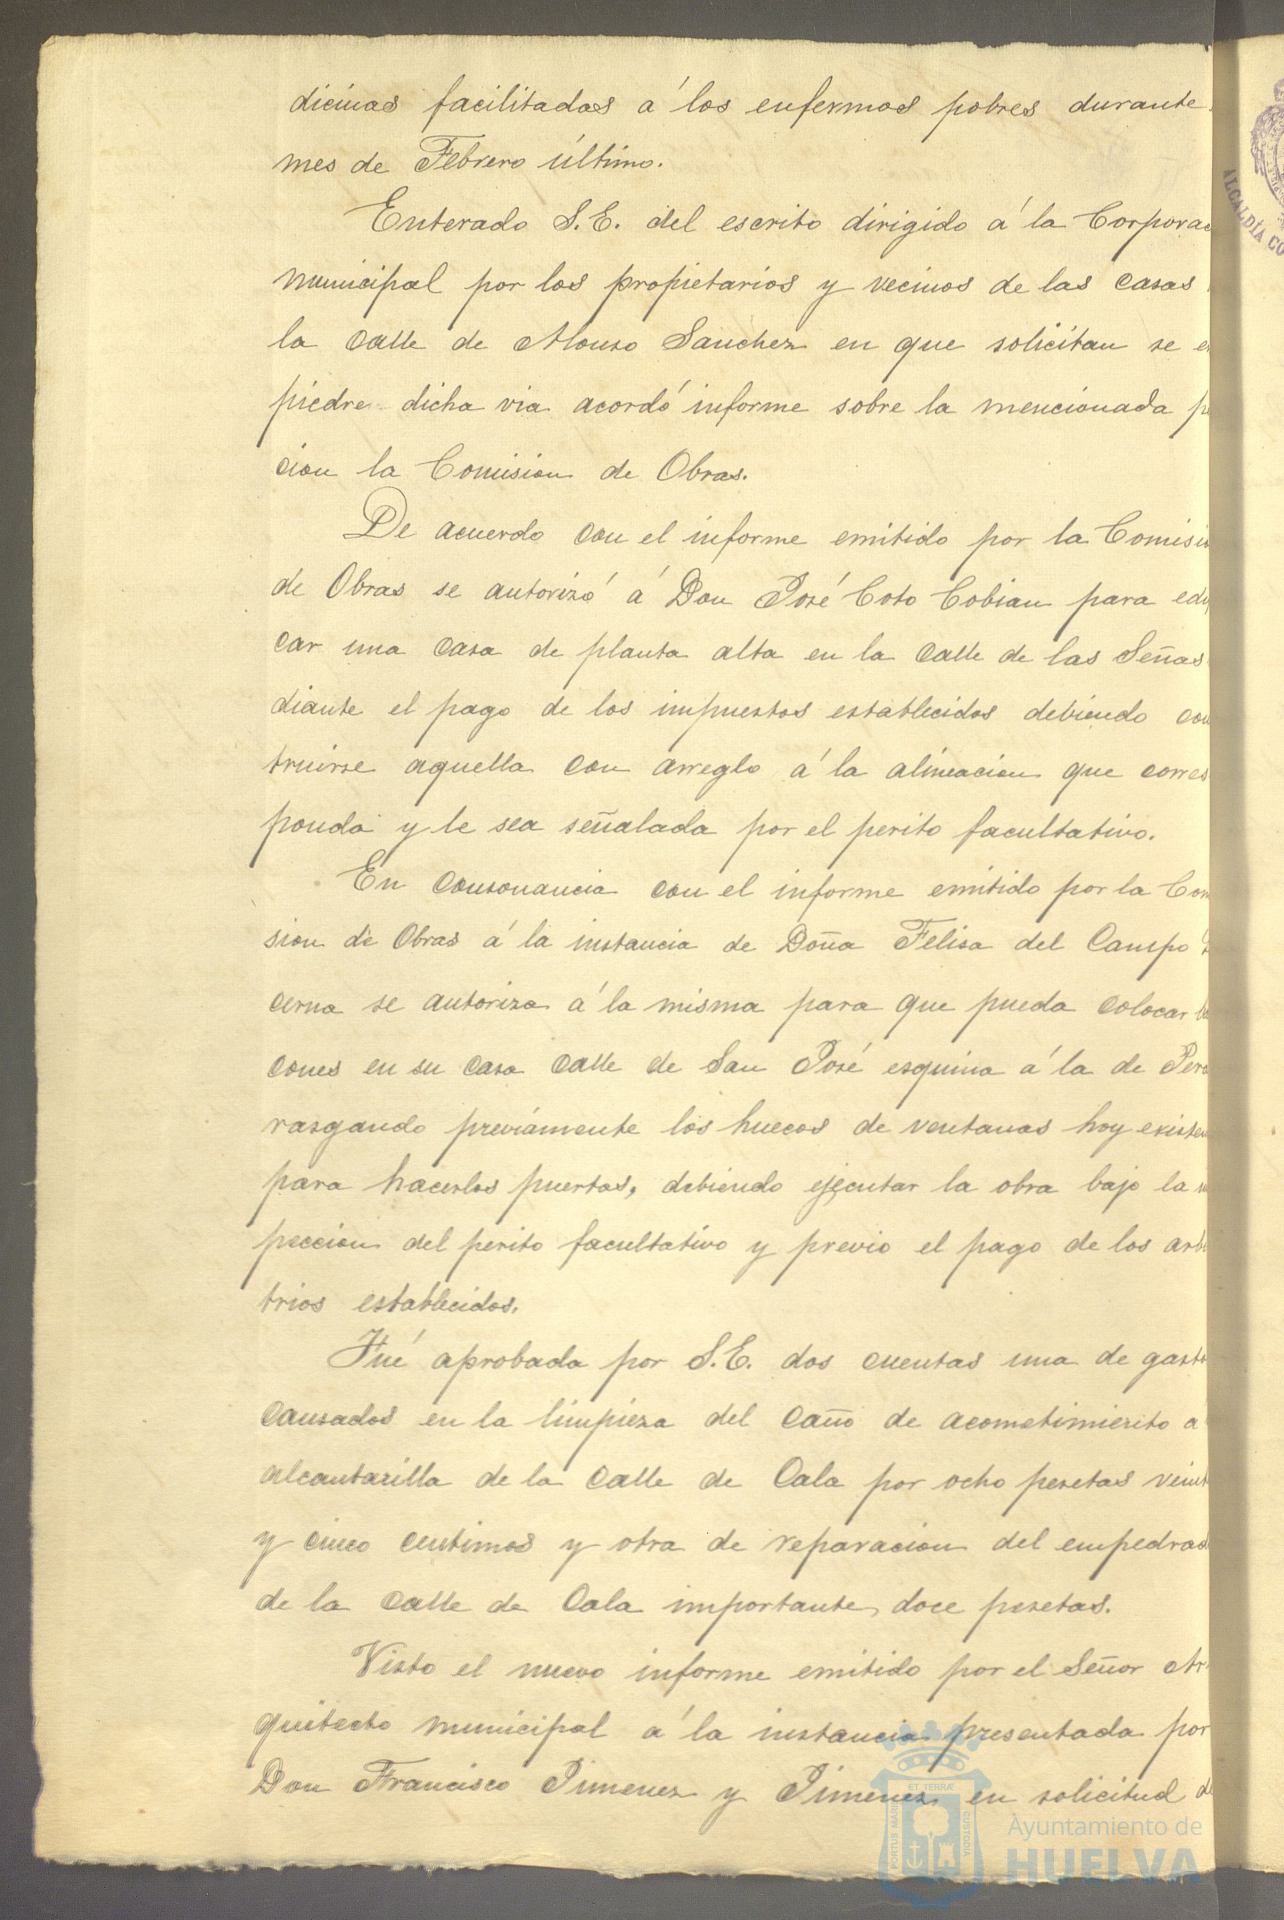 dicinas facilitadas á los enfermos pobres durante
mes de Febrero último.
Enterado S.E. del escrito dirigido á la Corporac
municipal por los propietarios y vecinos de las casas
la calle de Alonso Sanchez en que solicitan se e
piedre dicha via acordó informe sobre la mencionada p
cion la Comision de Obras.
De acuerdo con el informe emitido por la Comisi
de Obras se autorizó á Don José Coto Cobian para edi
car una casa de planta alta en la calle de las Señas
diante el pago de los impuestos establecidos debiendo con
truirse aquella con arreglo á la alineacion que corres
ponda y le sea señalada por el perito facultativo.
En consonancia con el informe emitido por la Com
sion de Obras á la instancia de Doña Felisa del Campo
cerna se autoriza á la misma para que pueda colocar
cones en su casa calle de San José esquina á la de Pera
rasgando préviamente los huecos de ventanas hoy existen
para hacerlos puertas, debiendo ejecutar la obra bajo la
peccion del perito facultativo y previo el pago de los arbi
trios establecidos.
Fué aprobada por S.E. dos cuentas una de gasto
causados en la limpieza del caño de acometimiento a
alcantarilla de la calle de Cala por ocho pesetas veint
y cinco centimos y otra de reparacion del empedrad
de la calle de Cala importante doce pesetas.
Visto el nuevo informe emitido por el Señor Ar
quitecto municipal á la instancia presentada por
Don Francisco Jimenez y Jimenez en solicitud d
ALCALDÍA CO
ET TERRÆ
PORTUS MARIS
CUSTODIA
Ayuntamiento de
HUELVA